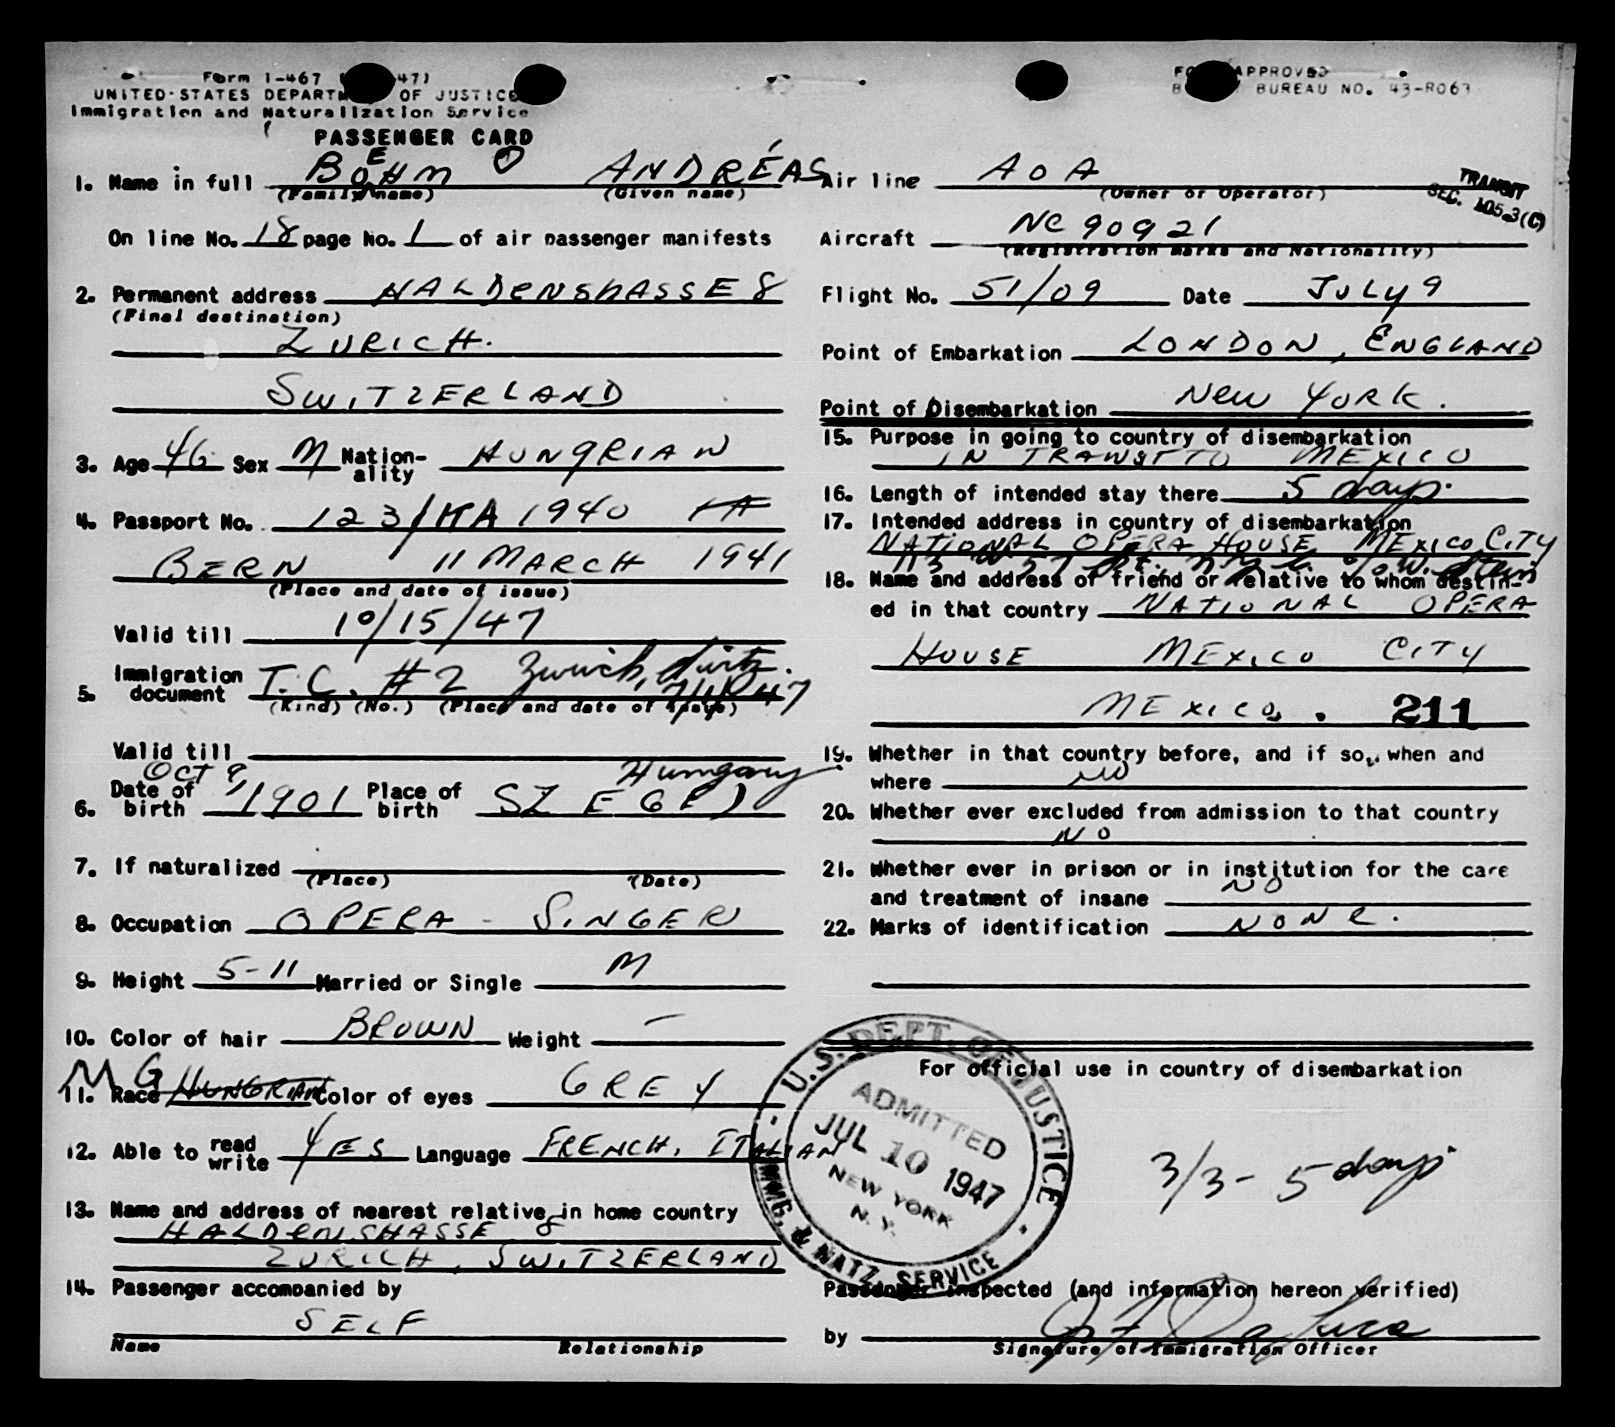 Form I-467 471
UNITED STATES DEPARTM OF JUSTICE
Immigration and Naturalization Service
PASSENGER CARD
FO APPROVED
B BUREAU NO. 43-R063
1. Name in full BOEHM ANDRÉAS
(Family name) (Given name)
On line No. 18 page No. 1 of air passenger manifests
2. Permanent address HALDENSHASSE 8
(Final destination)
ZURICH.
SWITZERLAND
3. Age 46 Sex M Nation-ality HUNGRIAN
4. Passport No. 123/KA 1940
BERN 11 MARCH 1941
(Place and date of issue)
Valid till 10/15/47
5. Immigration document T.C. #2 Zurich, Switz. 7/1/47
(Kind) (No.) (Place and date of issue)
Valid till
6. Date of birth OCT 9, 1901 Place of birth SZEGED Hungary
7. If naturalized
(Place) (Date)
8. Occupation OPERA - SINGER
9. Height 5-11 Married or Single M
10. Color of hair BROWN Weight —
11. Race HUNGRIAN MG Color of eyes GREY
12. Able to read write YES Language FRENCH, ITALIAN
13. Name and address of nearest relative in home country
HALDENSHASSE 8
ZURICH, SWITZERLAND
14. Passenger accompanied by
SELF
Name Relationship
Air line AOA
(Owner or Operator)
TRANSIT
SEC. 105.3(C)
Aircraft NC 90921
(Registration marks and Nationality)
Flight No. 51/09 Date JULY 9
Point of Embarkation LONDON, ENGLAND
Point of Disembarkation NEW YORK.
15. Purpose in going to country of disembarkation
IN TRANSIT TO MEXICO
16. Length of intended stay there 5 days.
17. Intended address in country of disembarkation
NATIONAL OPERA HOUSE MEXICO CITY
113 W 57 St.
18. Name and address of friend or relative to whom destin-
ed in that country NATIONAL OPERA
HOUSE MEXICO CITY
MEXICO. 211
19. Whether in that country before, and if so, when and
where NO
20. Whether ever excluded from admission to that country
NO
21. Whether ever in prison or in institution for the care
and treatment of insane NO
22. Marks of identification NONE.
For official use in country of disembarkation
U.S. DEPT. OF JUSTICE
ADMITTED
JUL 10 1947
NEW YORK
N.Y.
IMMIG. & NATZ. SERVICE
3/3 - 5 days
Passenger inspected (and information hereon verified)
by
Signature of Immigration Officer